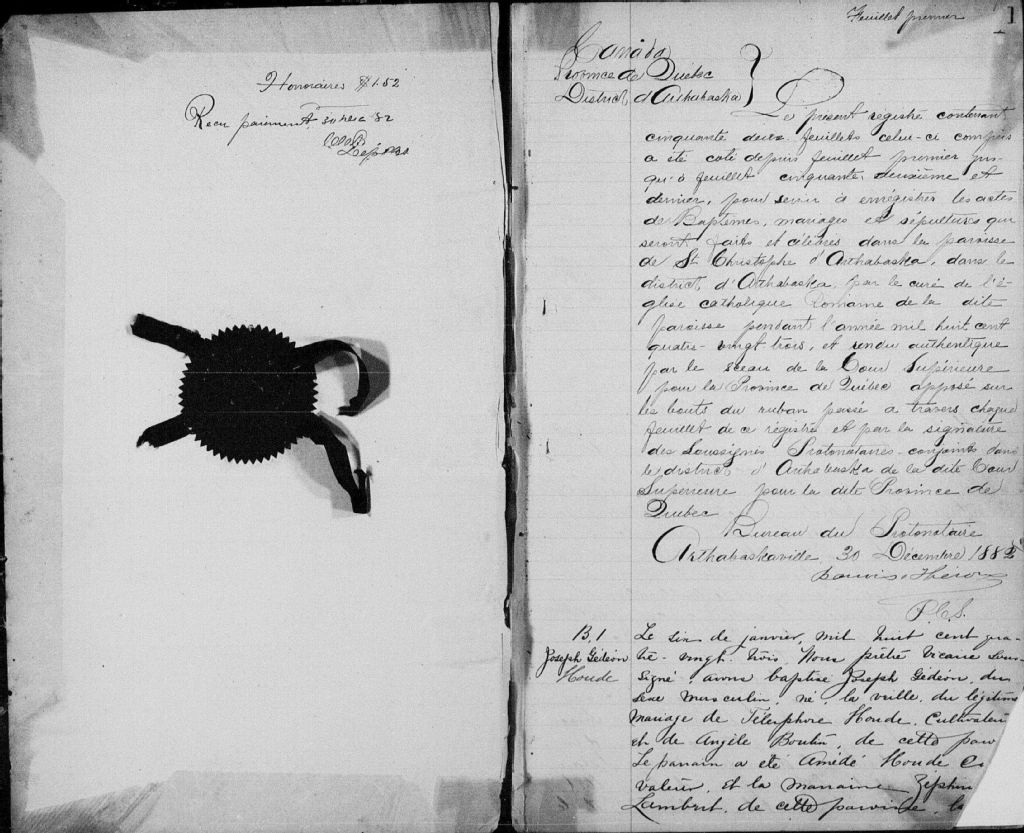 Honoraires $1.52
Recu paiement
Dep
Feuillet premier
1
Canada
Province de Québec
District d'Arthabaska
Le présent régistre contenant
cinquante deux feuillets celui-ci compris
a été coté depuis feuillet premier jus-
qu'à feuillet cinquante-deuxième et
dernier, pour servir à enrégistrer les actes
de Baptêmes, mariages et sépultures qui
seront faits et célébrés dans la paroisse
de St Christophe d'Arthabaska, dans le
district d'Arthabaska, par le curé de l'é-
glise catholique Romaine de la dite
paroisse pendant l'année mil huit cent
quatre-vingt trois, et rendu authentique
par le sceau de la Cour Supérieure
pour la Province de Québec apposé sur
les bouts du ruban passé a travers chaque
feuillet de ce régistre et par la signature
des Soussignés Protonotaires-conjoints dans
le district d'Arthabaska de la dite Cour
Supérieure pour la dite Province de
Québec
Bureau du Protonotaire
Arthabaskaville 30 Décembre 1882
P.C.S.
B. 1
Joseph Gédéon
Houde
Le six de janvier, mil huit cent qua-
tre-vingt-trois, Nous prêtre vicaire sous-
signé, avons baptisé Joseph Gédéon, du
sexe masculin, né, la veille, du légitime
mariage de Télesphore Houde, Cultivateur
et de Angèle Boutin, de cette paroi
Le parrain a été Amédé Houde Cul
tivateur, et la marraine Zéphir
Lambert, de cette paroisse, le